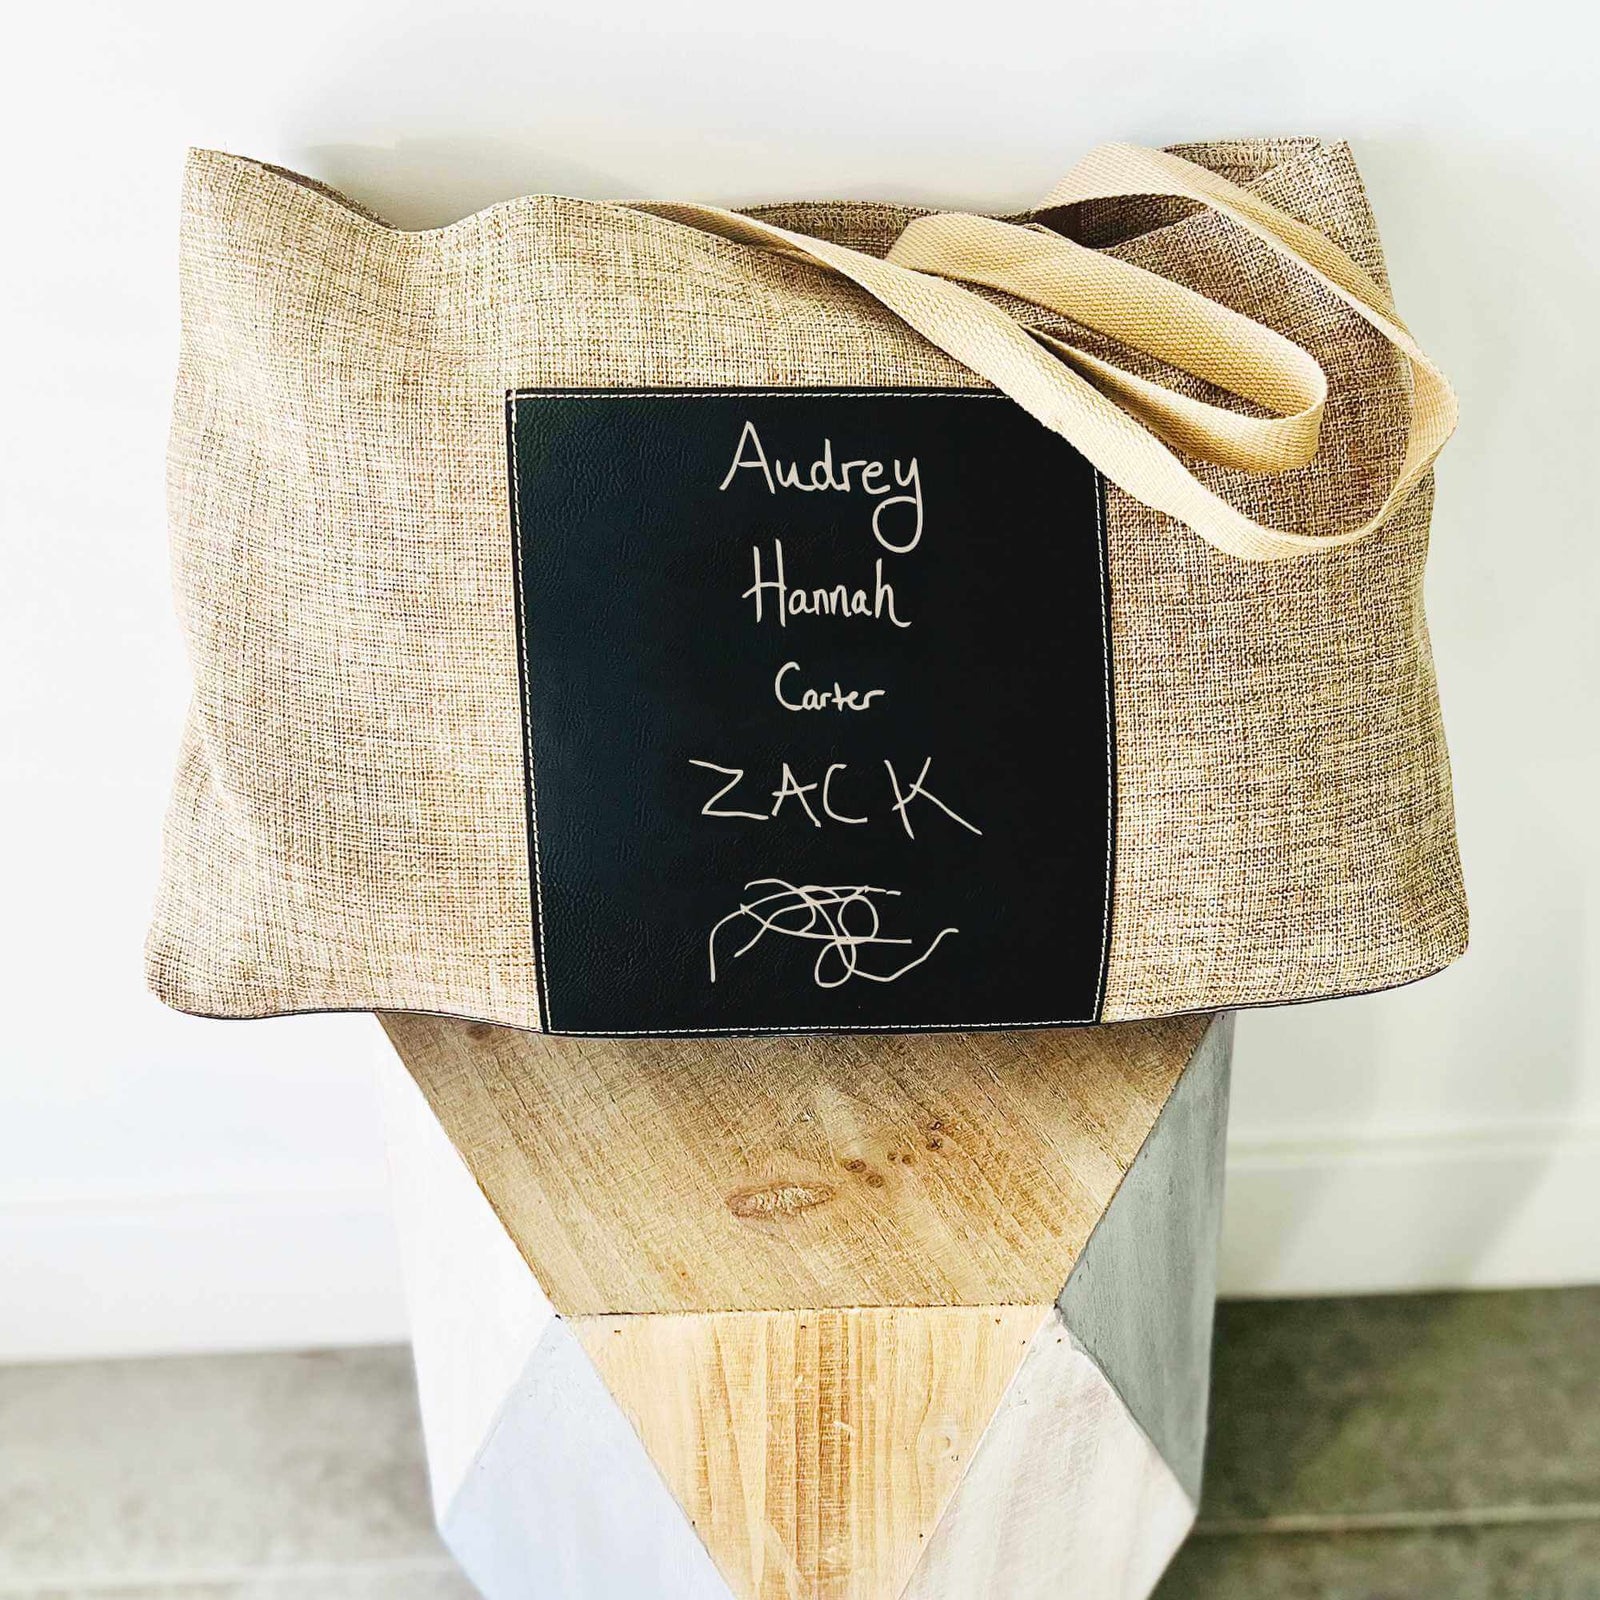 Audrey
Hannah
Carter
ZACK